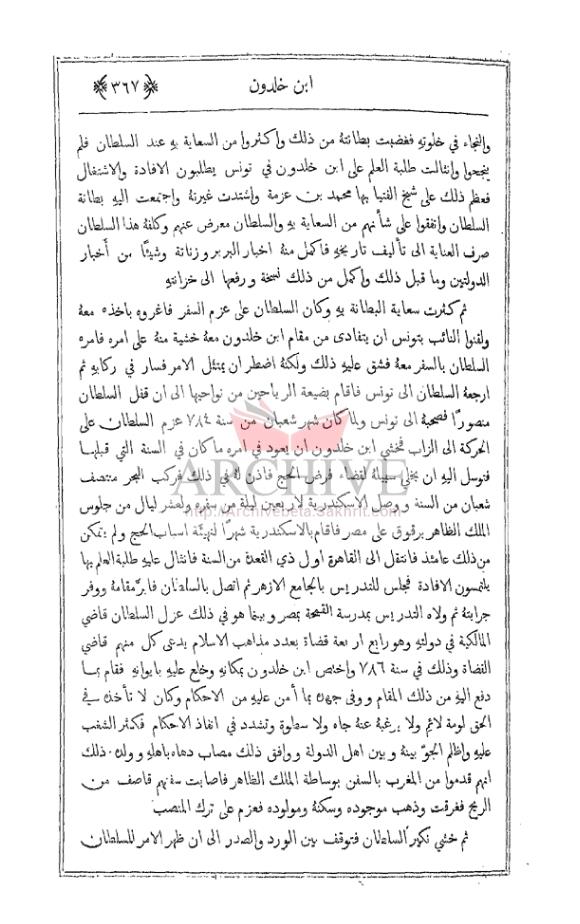 ابن خلدون ٣٦٧
والنجاء في خلوته فغضبت بطانتهُ من ذلك واكثروا من السعاية به عند السلطان فلم
ينجحوا وانثالت طلبة العلم على ابن خلدون في تونس يطلبون الافادة والاشتغال
فعظم ذلك على شيخ الفتيا بها محمد بن عرمة واشتدت غيرتهُ واجتمعت اليهِ بطانة
السلطان واتفقوا على شأنهم من السعاية به والسلطان معرض عنهم وكلفهُ هذا السلطان
صرف العناية الى تأليف تاريخهِ فاكمل منهُ اخبار البربر وزناتة وشيئًا من أخبار
الدولتين وما قبل ذلك واكمل من ذلك نسخة ورفعها الى خزانتهِ
ثم كثرت سعاية البطانة به وكان السلطان على عزم السفر فاغروه باخذه معهُ
ولقنوا النائب بتونس ان يتفادى من مقام ابن خلدون معهُ خشية منهُ على امره فامره
السلطان بالسفر معهُ فشق عليهِ ذلك ولكنهُ اضطر ان يمتثل الامر فسار في ركابهِ ثم
ارجعهُ السلطان الى تونس فاقام بضيعة الرياحين من نواحيها الى ان قفل السلطان
منصورًا فصحبهُ الى تونس ولما كان شهر شعبان من سنة ٧٨٤ عزم السلطان على
الحركة الى الزاب فخشي ابن خلدون ان يعود في امره ما كان في السنة التي قبلها
فتوسل اليهِ ان يخلي سبيلهُ لقضاء فرض الحج فاذن لهُ في ذلك فركب البحر منتصف
شعبان من السنة ووصل الاسكندرية لاربعين ليلة من سفره ولعشر ليال من جلوس
الملك الظاهر برقوق على مصر فاقام بالاسكندرية شهرًا لتهيئة اسباب الحج ولم يتمكن
من ذلك عامئذ فانتقل الى القاهرة اول ذي القعدة من السنة فانثال عليهِ طلبة العلم بها
يلتمسون الافادة فجلس للتدريس بالجامع الازهر ثم اتصل بالسلطان فابرّ مقامهُ ووفر
جرايتهُ ثم ولاه التدريس بمدرسة القمحة بمصر وبينما هو في ذلك عزل السلطان قاضي
المالكية في دولتهِ وهو رابع اربعة قضاة بعدد مذاهب الاسلام يدعى كل منهم قاضي
القضاة وذلك في سنة ٧٨٦ واختص ابن خلدون بمكانهِ وخلع عليهِ بايوانهِ فقام بما
دفع اليهِ من ذلك المقام ووفى جهده بما أمن عليهِ من الاحكام وكان لا تأخذه في
الحق لومة لائم ولا يرغبهُ عنهُ جاه ولا سطوة وتشدد في انفاذ الاحكام فكثر الشغب
عليهِ واظلم الجوّ بينهُ وبين اهل الدولة ووافق ذلك مصاب دهاه باهلهِ وولده. ذلك
انهم قدموا من المغرب بالسفن بوساطة الملك الظاهر فاصابت سفنهم قاصف من
الريح فغرقت وذهب موجوده وسكنهُ ومولوده فعزم على ترك المنصب
ثم خشي نكير السلطان فتوقف بين الورد والصدر الى ان ظهر الامر للسلطان
ARCHIVE
http://Archivebeta.Sakhrit.com